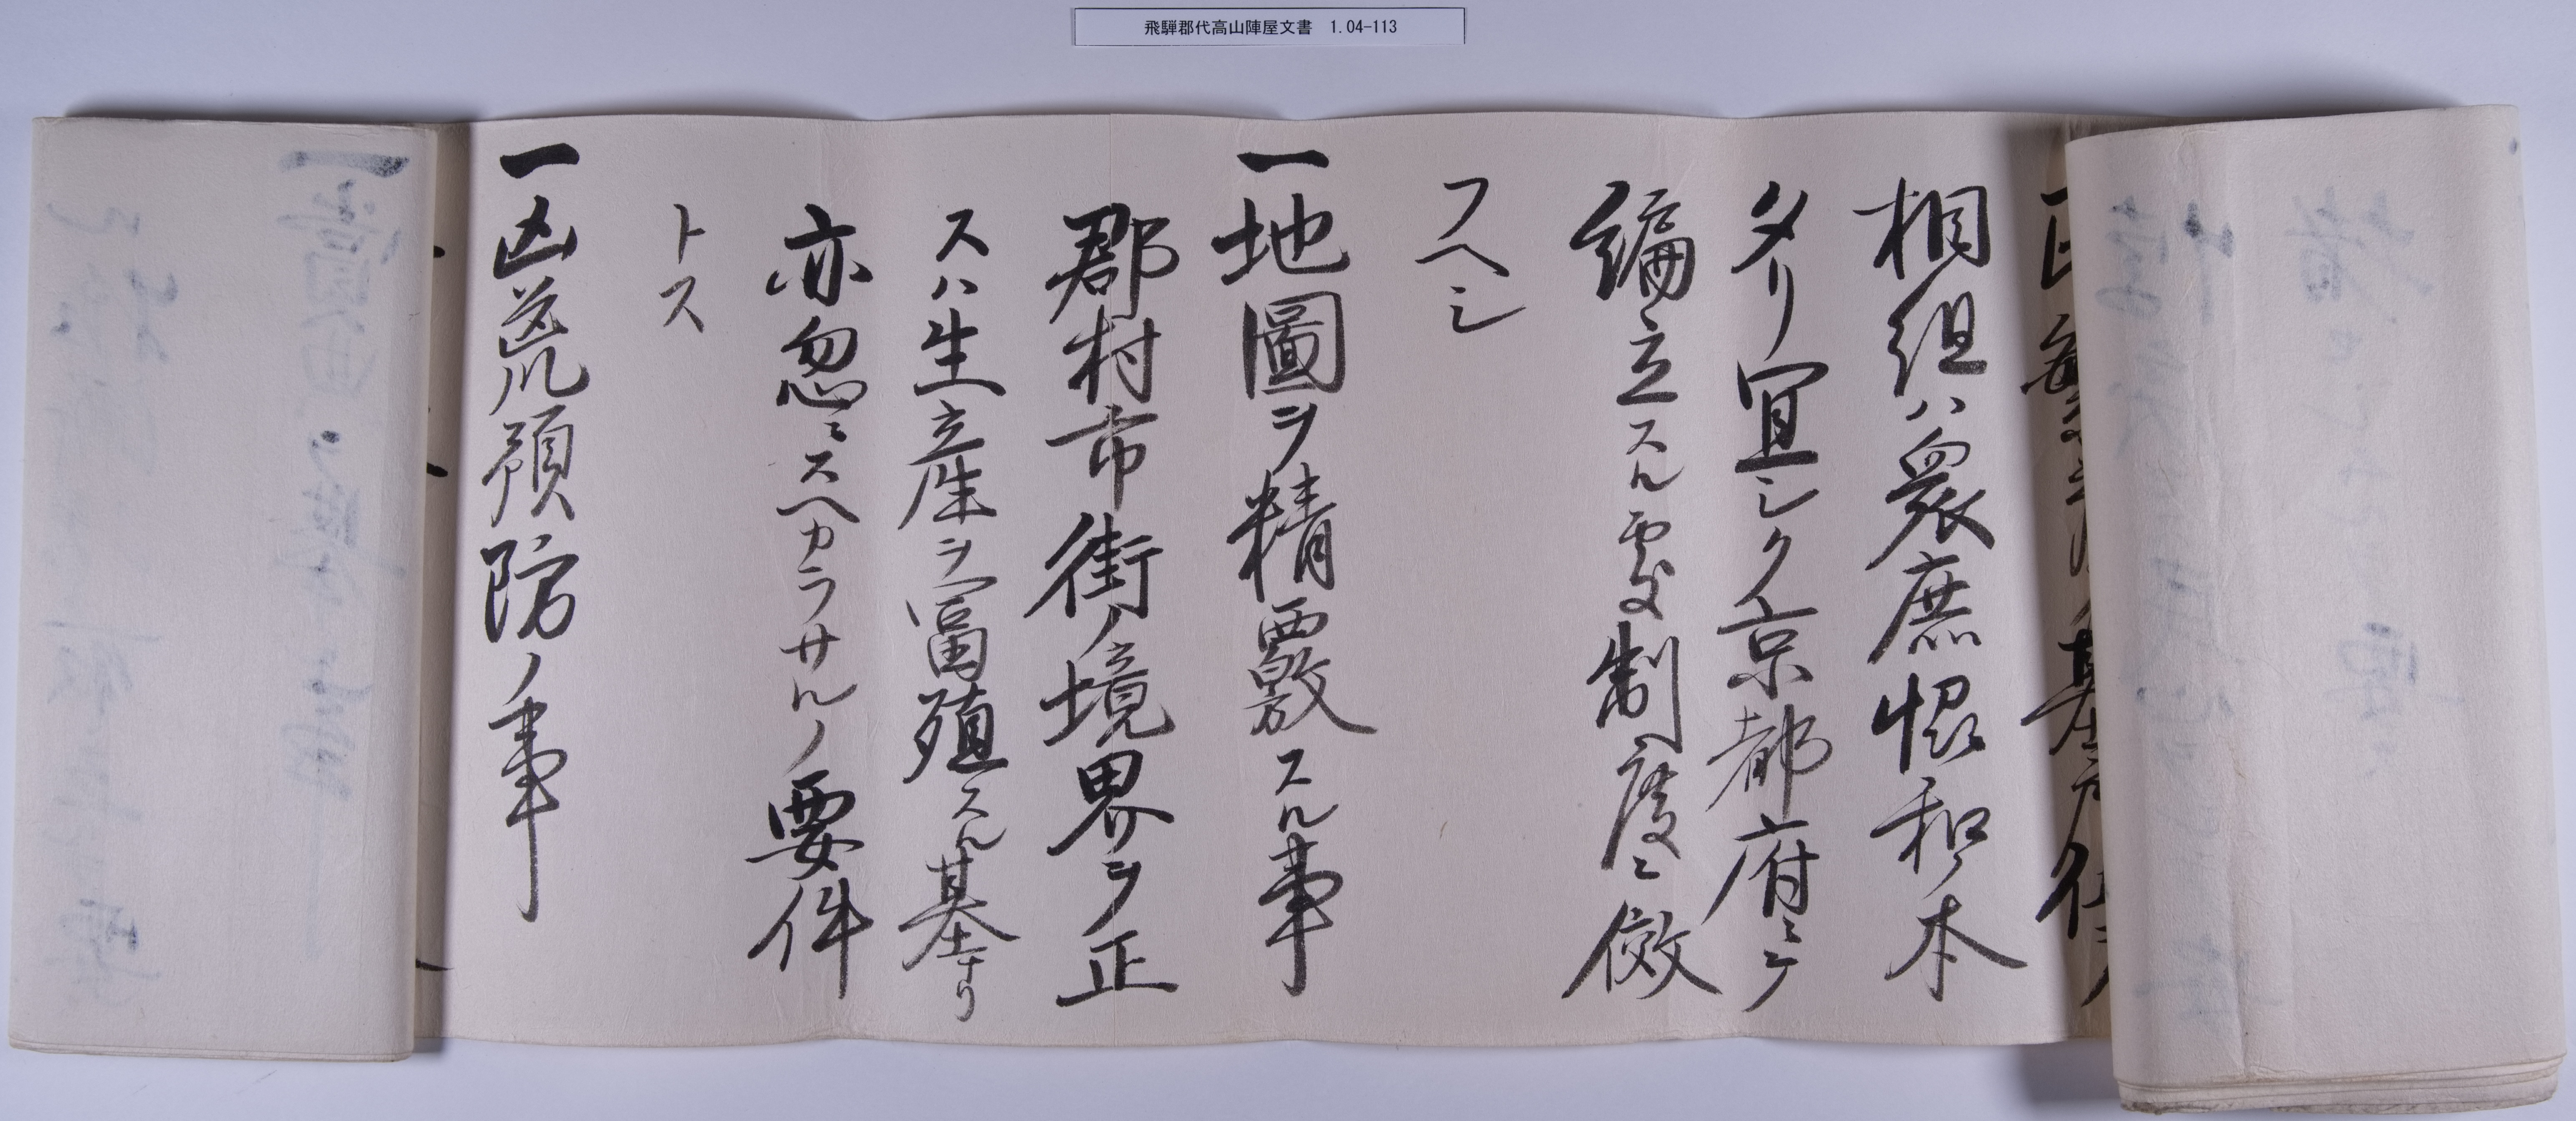 飛騨郡代高山陣屋文書 1.04-113
相組ハ衆庶協和ノ本
タリ宜シク京都府ニテ
編立スル處制度ニ倣
フヘシ
一地圖ヲ精覈スル事
郡村市街ノ境界ヲ正
スハ生産ヲ富殖スル基ナリ
亦忽ニスヘカラサルノ要件
トス
一凶荒預防ノ事